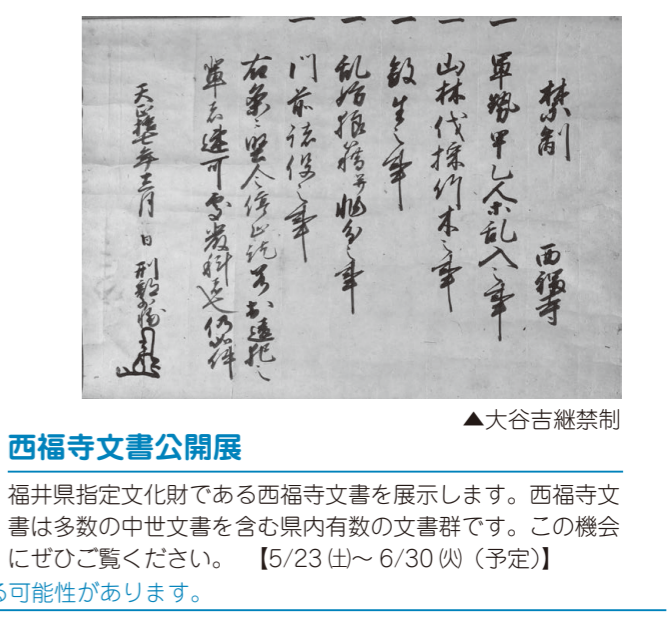 禁制　西福寺
一 軍勢甲乙人等乱入之事
一 山林伐採竹木之事
一 殺生之事
一 乱妨狼藉并
一 門前諸役之事
右条々堅令停止訖若於違犯之
輩者速可処厳科者也仍如件
天正拾七年十二月　日　刑部少輔
▲大谷吉継禁制
西福寺文書公開展
福井県指定文化財である西福寺文書を展示します。西福寺文
書は多数の中世文書を含む県内有数の文書群です。この機会
にぜひご覧ください。　【5/23㈯～ 6/30㈫（予定）】
る可能性があります。